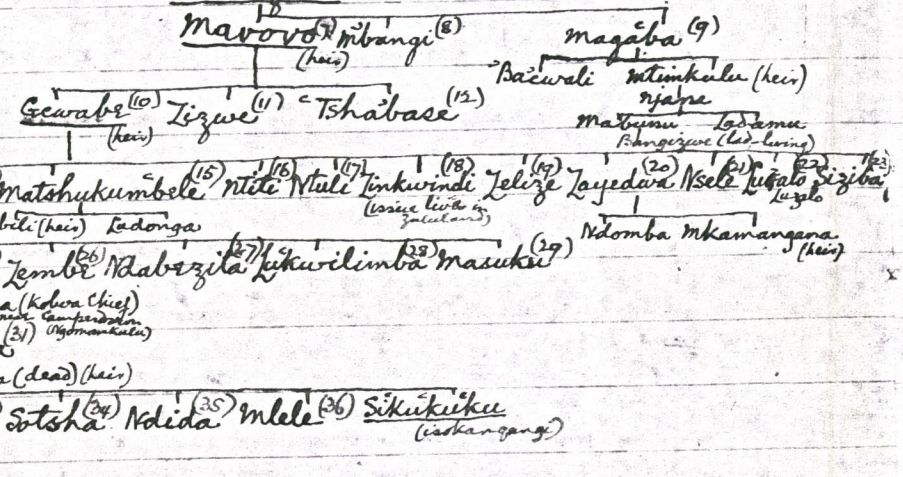 Mavovo (7) Mbangi (8) Magaba (9)
(heir)
Bacwali Mtimkulu (heir)
Njape
Gcwabe (10) Zizwe (11) Tshabase (12)
(heir)
Mabunu Ladamu
Bangizwe (lad-living)
Matshukumbele (15) Ntiti (16) Ntuli (17) Zinkwindi (18) Zelize (19) Zayedwa (20) Nsele (21) (22) Siziba (23)
(issue live in
Zululand)
bili (heir) Ladonga
Ndomba Mkamangana
(heir)
Zembe (26) Ndabezita (27) Lukwilimba (28) Masuku (29)
a (Kolwa Chief)
near Camperdown
(31) (Ngomankulu)
a (dead) (heir)
Sotsha (34) Ndida (35) Mlele (36) Sikukuku
(isokanqangi)